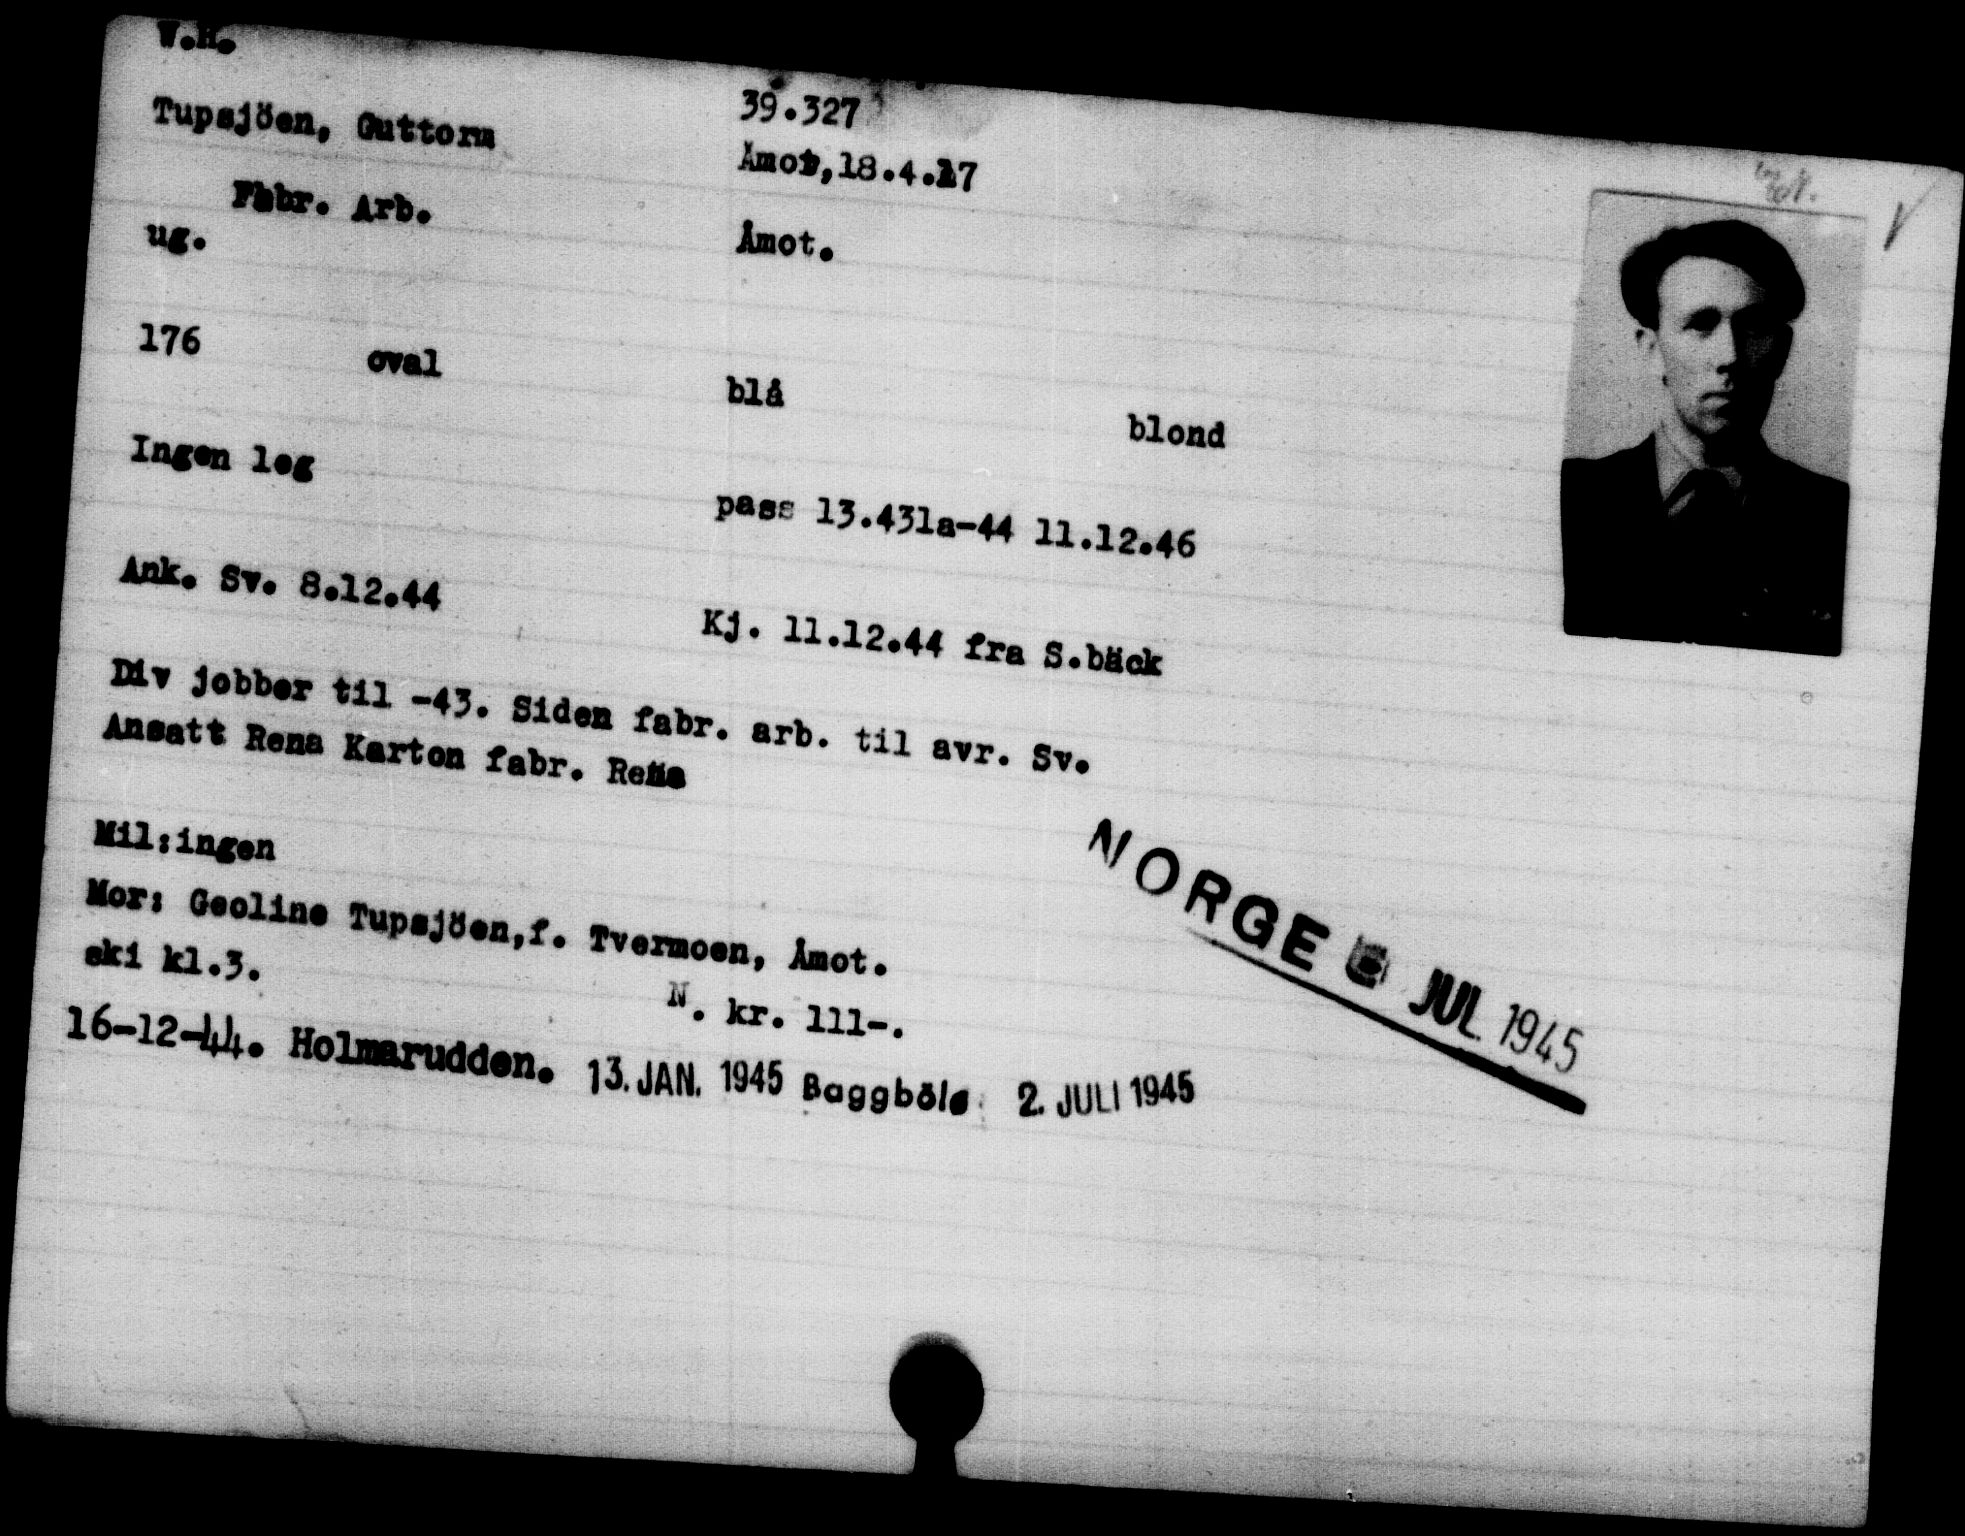 V.H.
39.327
Tupsjöen, Guttorm
Åmot, 18.4.27
Fabr. Arb.
ug.
Åmot.
176 oval blå blond
Ingen leg
pass 13.431a-44 11.12.46
Ank. Sv. 8.12.44
Kj. 11.12.44 fra S.bäck
Div jobber til -43. Siden fabr. arb. til avr. Sv.
Ansatt Rena Karton fabr. Rena
Mil:ingen
Mor: Geoline Tupsjöen,f. Tvermoen, Åmot.
ski kl.3.
N. kr. 111-.
16-12-44. Holmarudden. 13. JAN. 1945 Baggböle 2. JULI 1945
NORGE JUL 1945